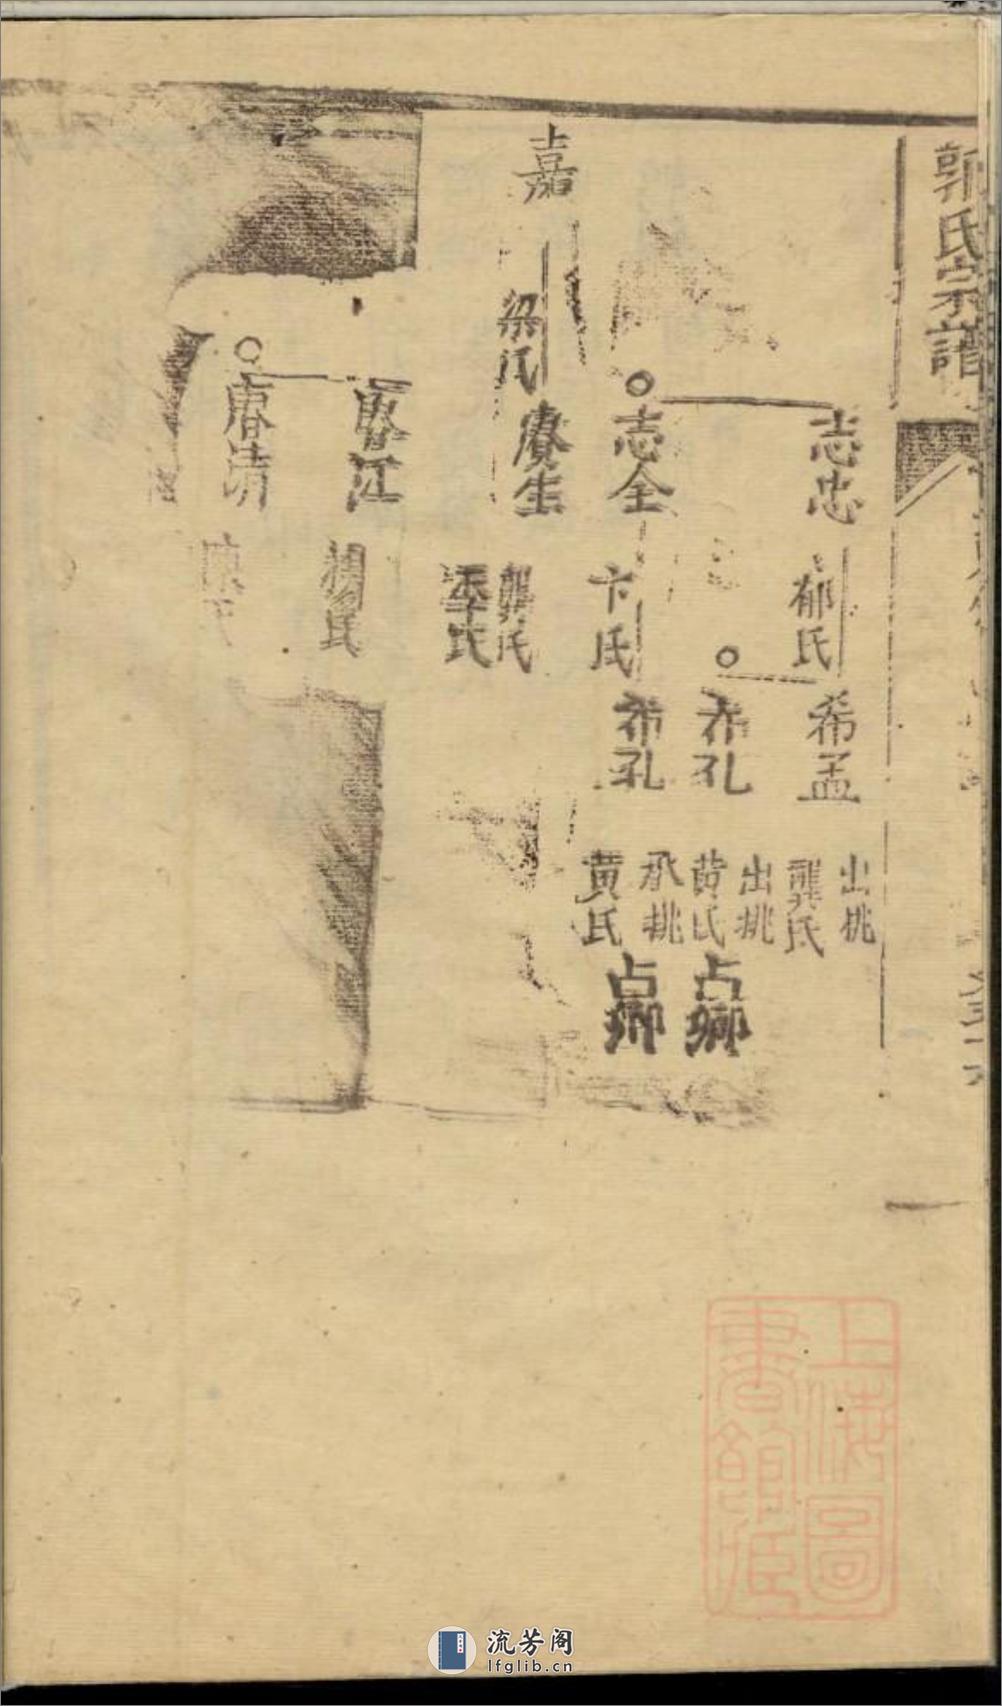 郭氏宗譜
志忠
郁氏
希孟
出桃
龔氏
希孔
出桃
黄氏
占鄉
志全
卞氏
希孔
承桃
黄氏
占鄉
嘉
梁氏
賡生
龔氏
季氏
春江
春清
上海圖
書館藏
流芳阁
lfglib.cn